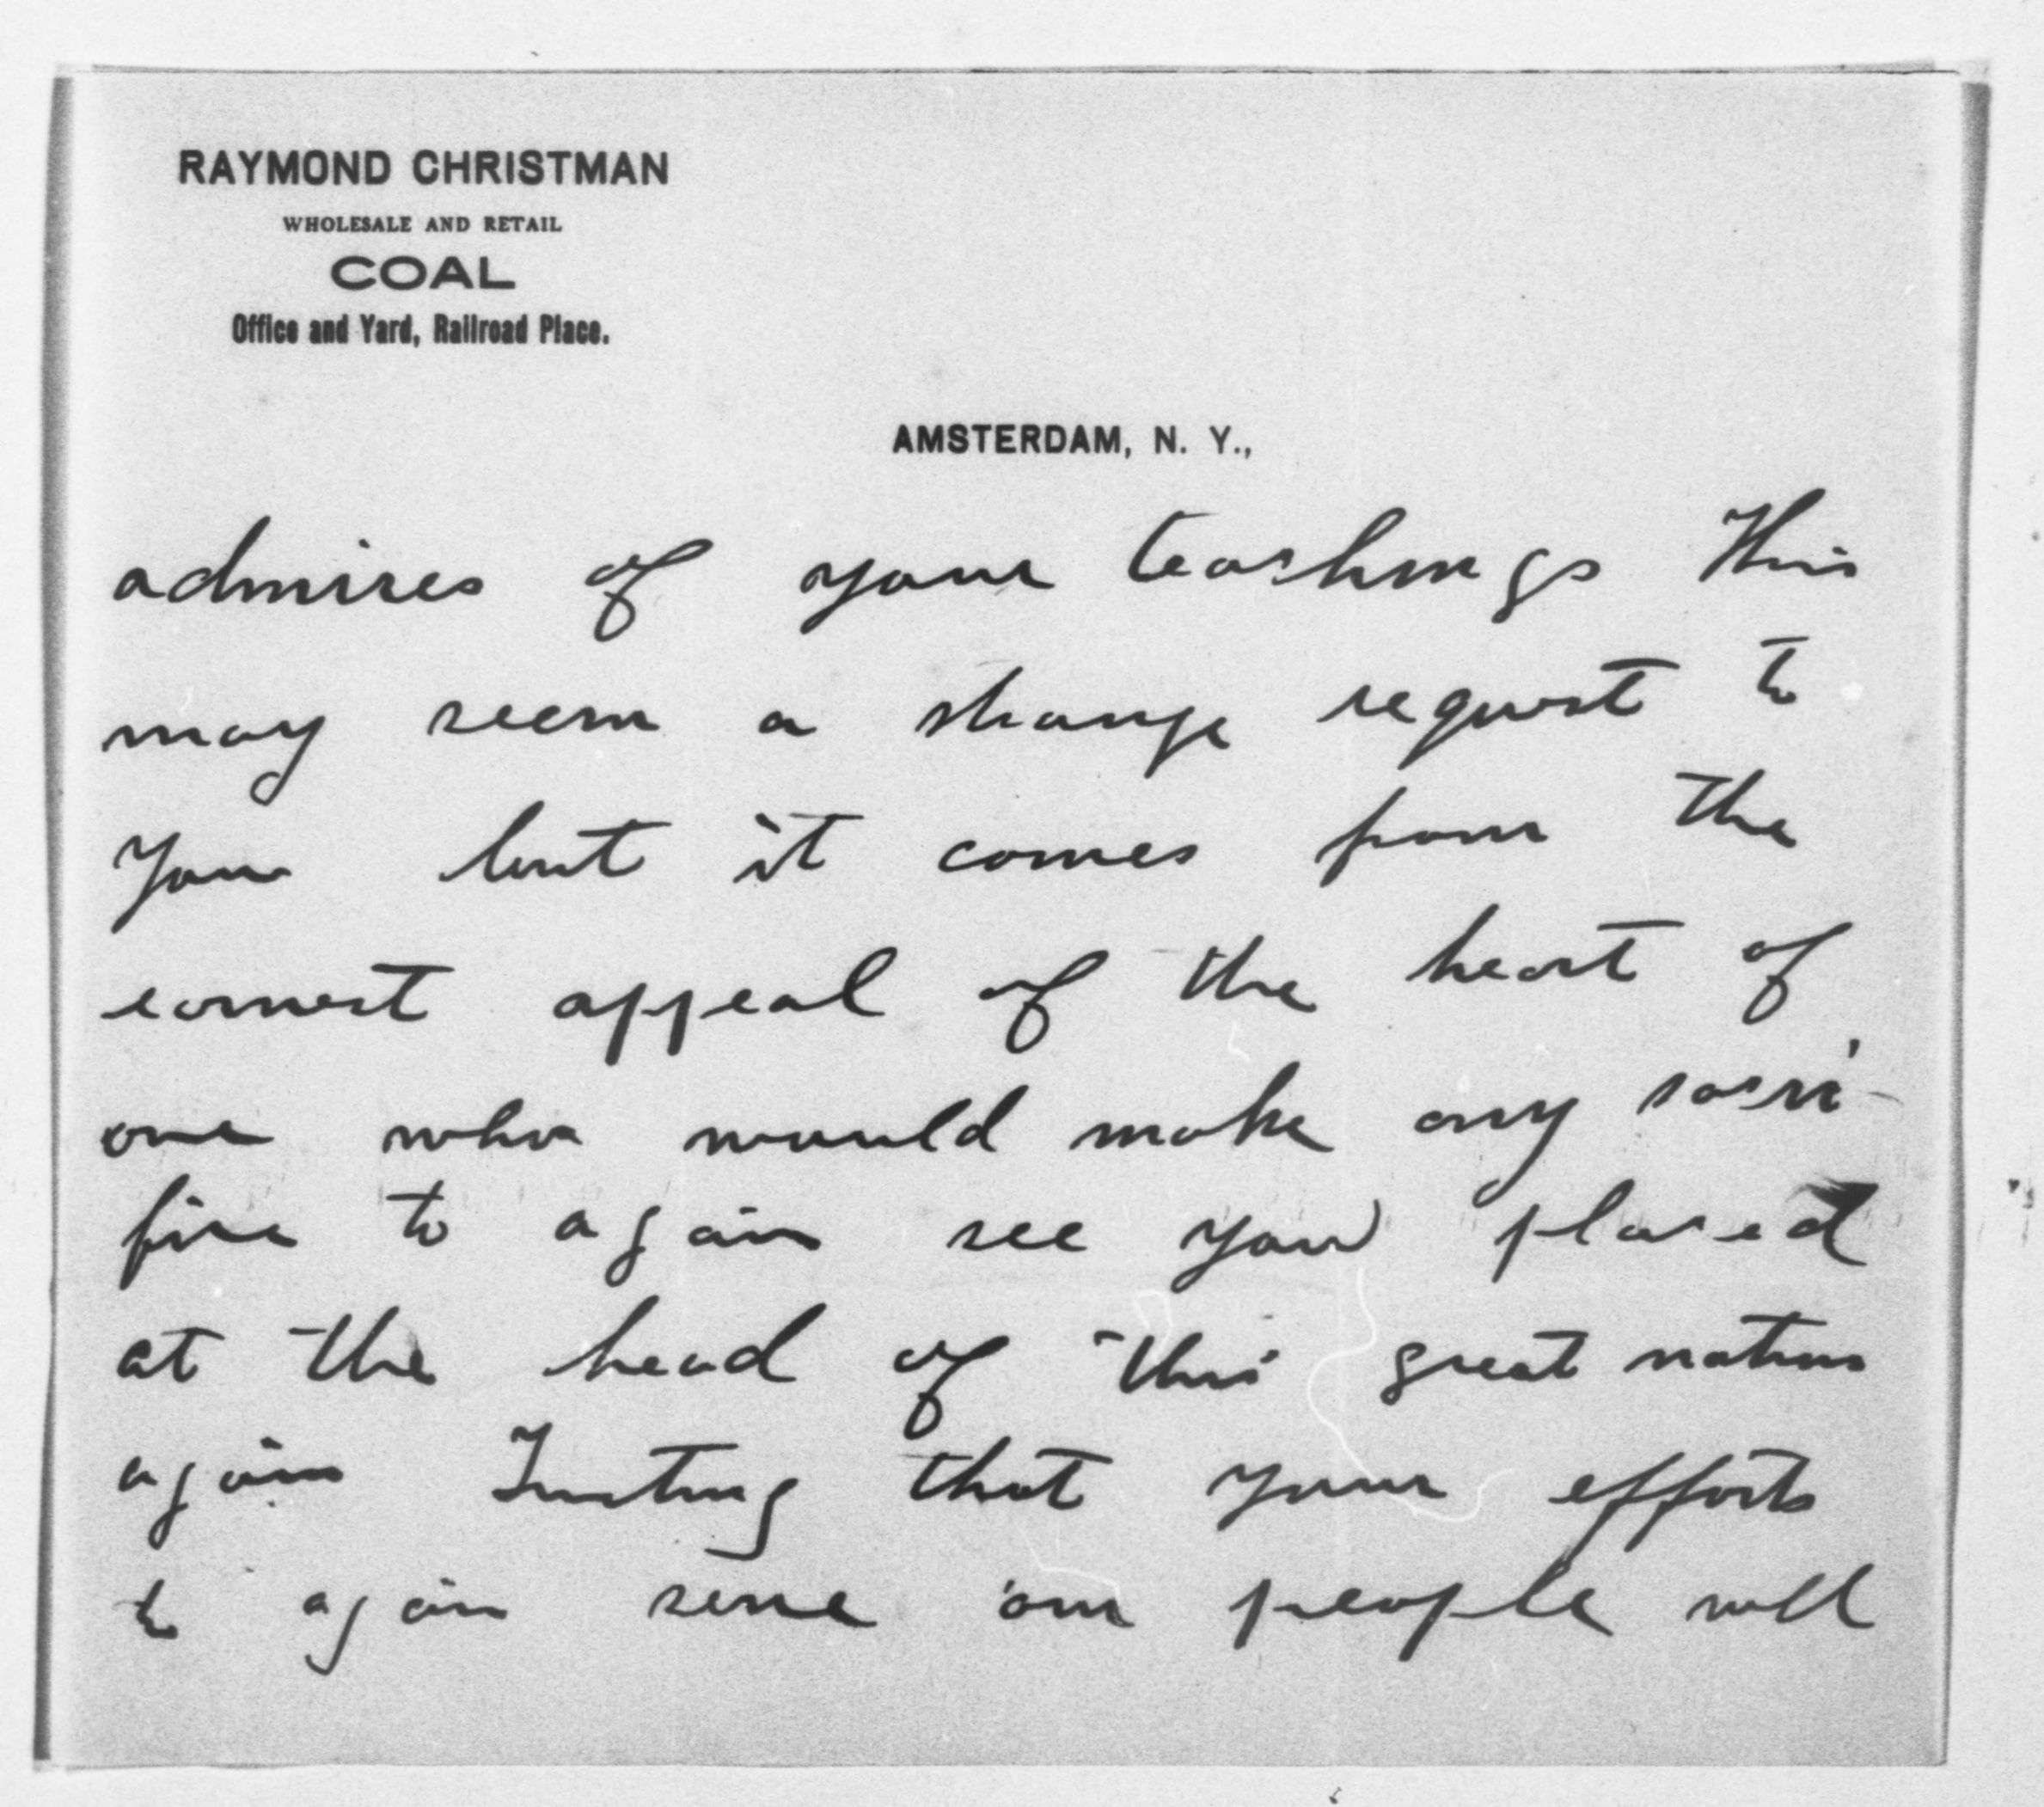 RAYMOND CHRISTMAN
WHOLESALE AND RETAIL
COAL
Office and Yard, Railroad Place.
AMSTERDAM, N. Y.,
admires of your teachings This
may seem a strange request to
you but it comes from the
earnest appeal of the heart of
one who would make any sacri-
fice to again see you placed
at the head of this great nation
again Trusting that your efforts
to again serve our people will